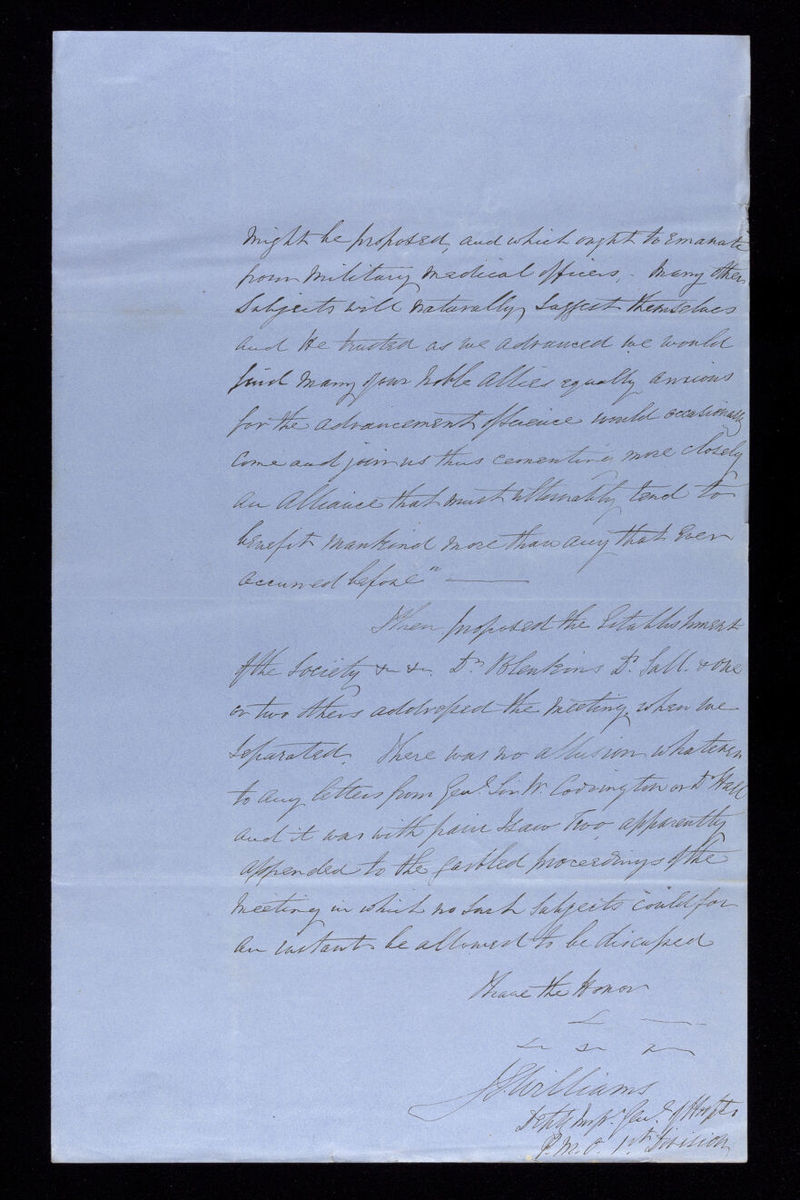 might be proposed, and which ought to emanate
from Military Medical officers. Many other
Subjects will naturally suggest themselves
and He trusted as we advanced we would
find many of our Noble Allies equally anxious
for the advancement of science would occasionally
come and join us thus cementing more closely
an Alliance that must ultimately tend to
benefit Mankind more than any that Ever
occurred before" —
then proposed the Establishment
of the Society &c &c. Dr Blenkins Dr Sall & one
or two others addressed the Meeting, when we
separated. There was no allusion whatever
to any letters from Genl Sir W. Codrington or Dr Hall
and it was with pain I saw two apparently
appended to the garbled proceedings of the
Meeting in which no such subjects could for
an instant be allowed to be discussed
I have the Honor
&c &c &c
Williams
Depty Inspr Genl of Hospts
P.M.O. 1st Division